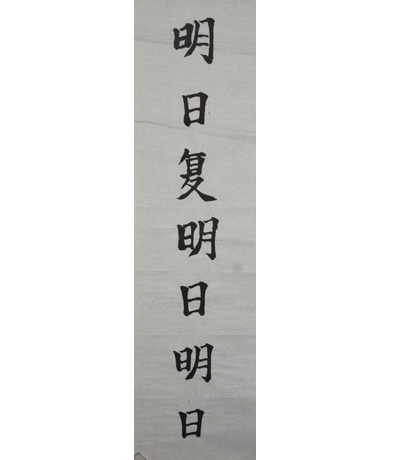 明日复明日明日